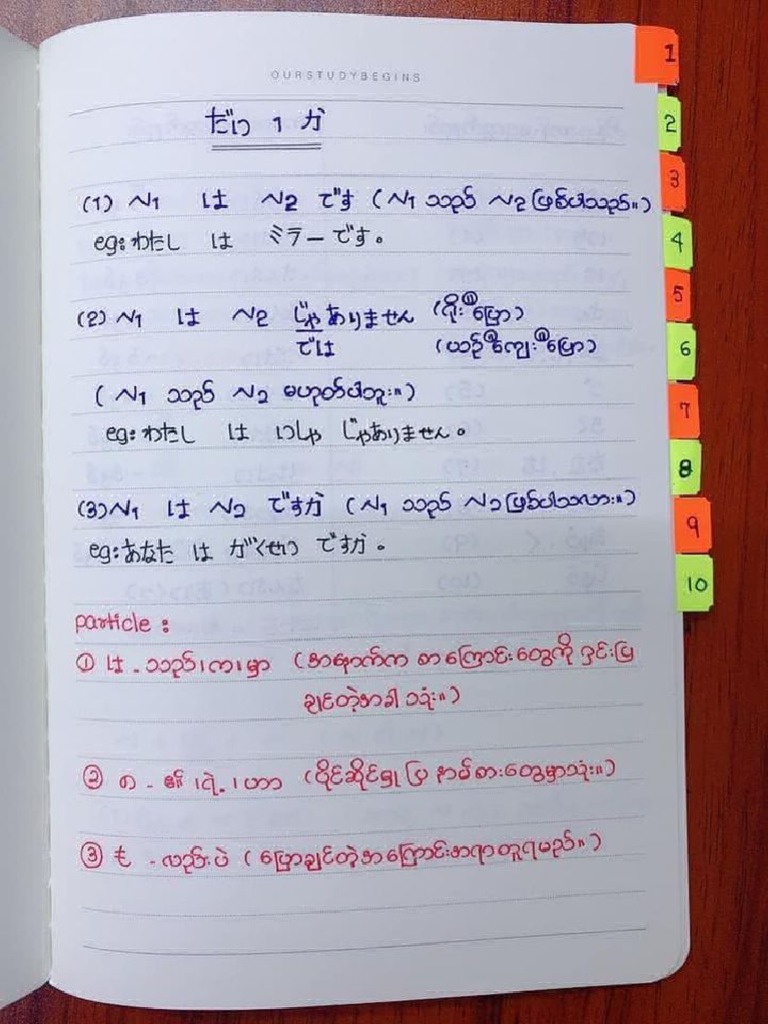 OURSTUDYBEGINS
だい 1 か
(1) N1 は N2 です (N1 သည် N2 ဖြစ်ပါသည်။)
eg: わたし は ミラーです。
(2) N1 は N2 じゃありません (ရိုးရိုးပြော)
では (ယဉ်ယဉ်ကျေးကျေးပြော)
(N1 သည် N2 မဟုတ်ပါဘူး။)
eg: わたし は いしゃ じゃありません。
(3) N1 は N2 ですか (N1 သည် N2 ဖြစ်ပါသလား။)
eg: あなた は がくせい ですか。
particle :
① は - သည်၊က၊မှာ (အနောက်က စာကြောင်းတွေကို ရှင်းပြ
ချင်တဲ့အခါ သုံး။)
② の - ၏၊ရဲ့၊ဟာ (ပိုင်ဆိုင်မှုပြ နာမ်စားတွေမှာသုံး။)
③ も - လည်းပဲ (ပြောချင်တဲ့အကြောင်းအရာတူရမည်။)
1
2
3
4
5
6
7
8
9
10